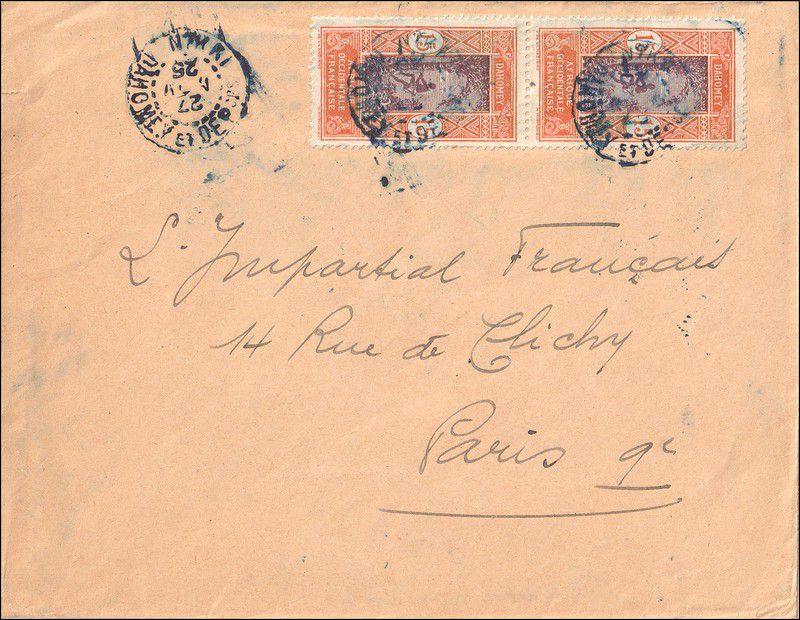 NIKKI
25
AV
27
DAHOMEY ET DEP
15
AFRIQUE
OCCIDENTALE
FRANÇAISE
DAHOMEY
15
OCCIDENTALE
FRANÇAISE
DAHOMEY
L'Impartial Français
14 Rue de Clichy
Paris 9e